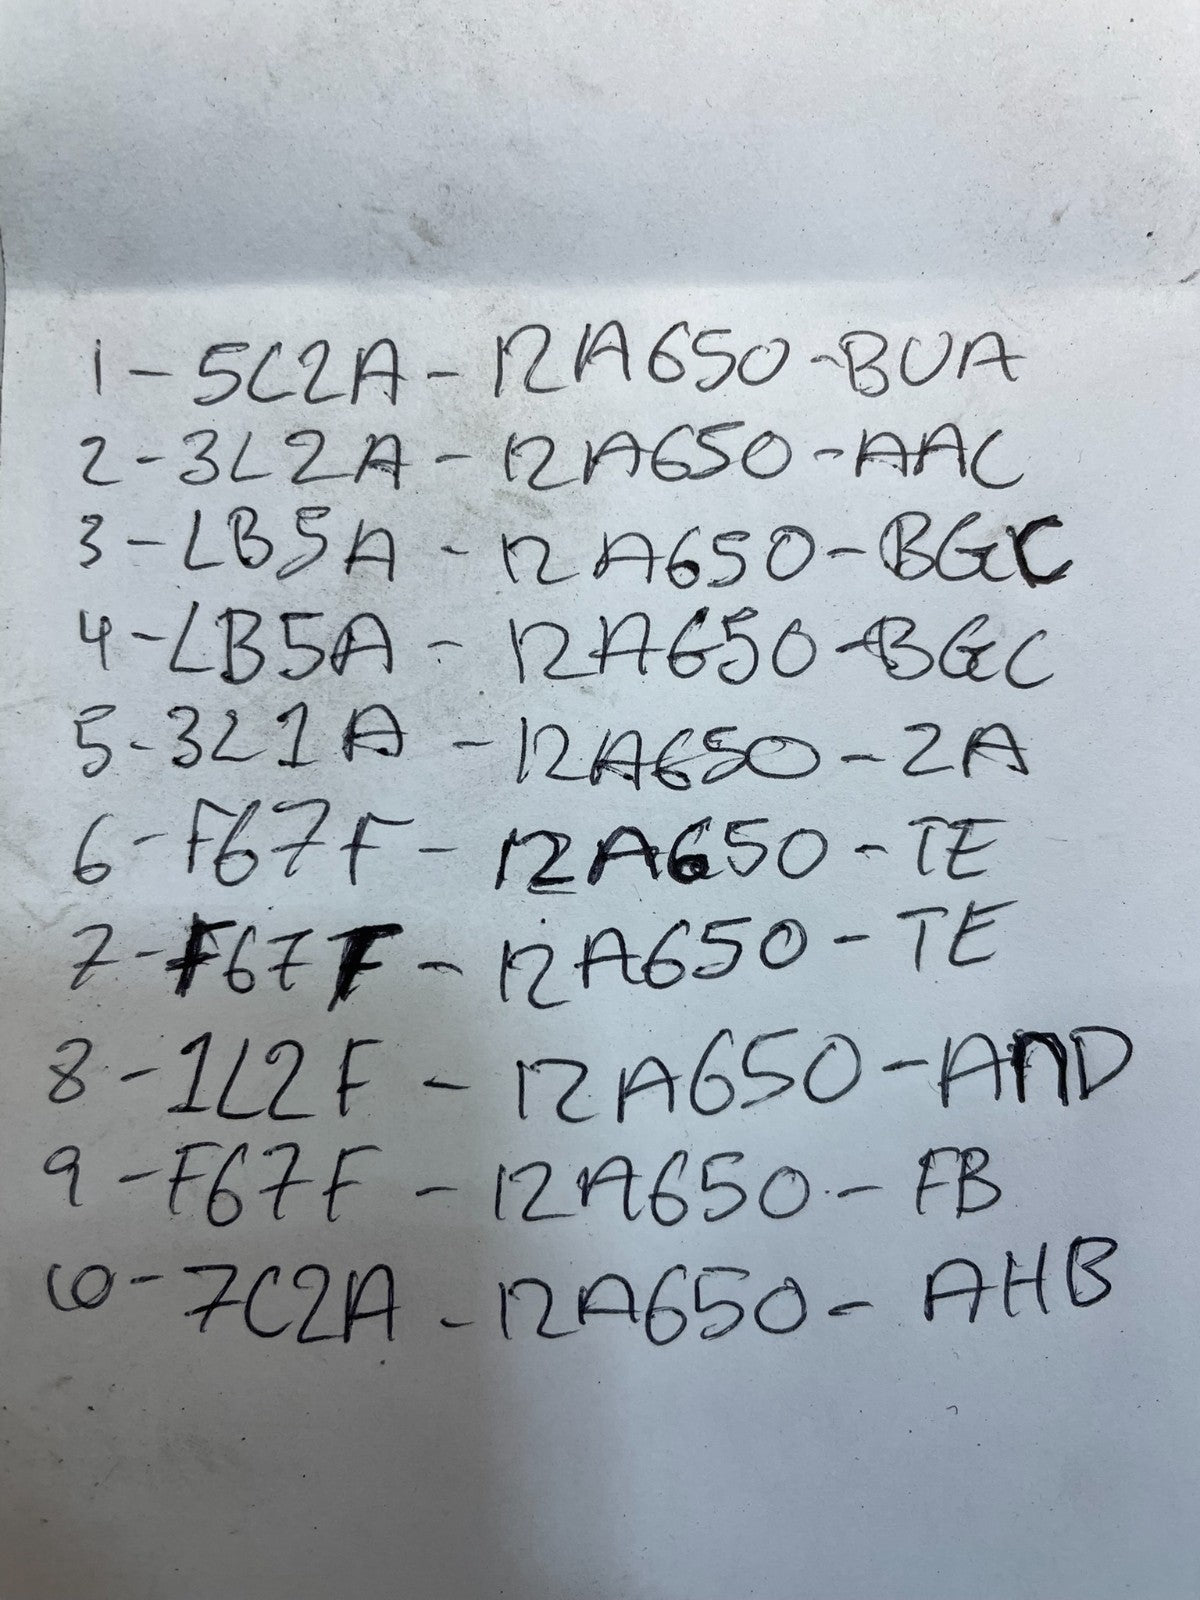 1-5C2A-12A650-BUA
2-3L2A-12A650-AAC
3-LB5A-12A650-BGC
4-LB5A-12A650-BGC
5-3L1A-12A650-2A
6-F67F-12A650-TE
7-F67F-12A650-TE
8-1L2F-12A650-AND
9-F67F-12A650-FB
10-7C2A-12A650-AHB